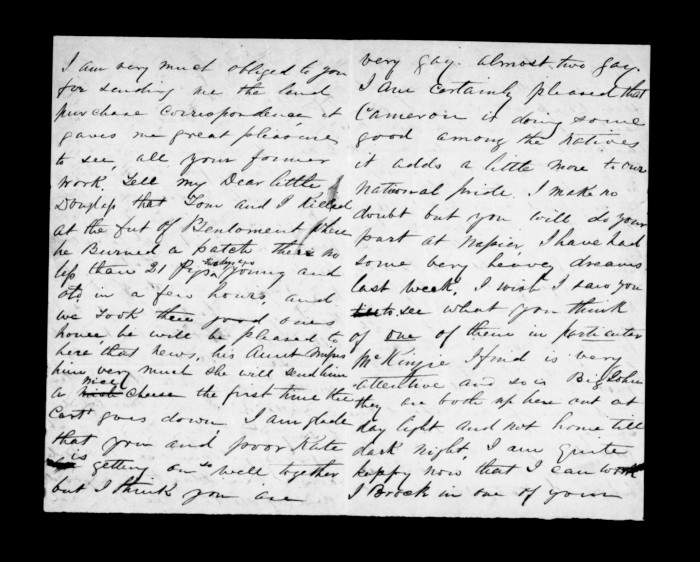 I am very much obliged to you
for sending me the land
purchase correspondence it
gaves me great pleasure
to see, all your former
work. Tell my Dear little
Douglass that Tom and I killed
at the fut of Bentoment place
he Burned a patch there no
less than 21 Pigs young and
old in a few hours, and
we took three good ones
home, he will be pleased to
here that news, his Aunt misses
him very much she will send him
a nice cheese the first time the
Cart goes down, I am glade
that you and poor Kate
is getting on so well together
but I think you are
very gay. almost two gay.
I am certainly pleased that
Cameron is doing some
good among the natives
it adds a little more to our
national pride. I make no
doubt but you will do your
part at Napier, I have had
some very heivey dreams
last week, I wish I saw you
to see what you think
of one of them in particuler
McKinzie I find is very
attentive and so is Big John
they are both up here out at
day light and not home till
dark night, I am quite
happy now that I can work
I Brock in one of your